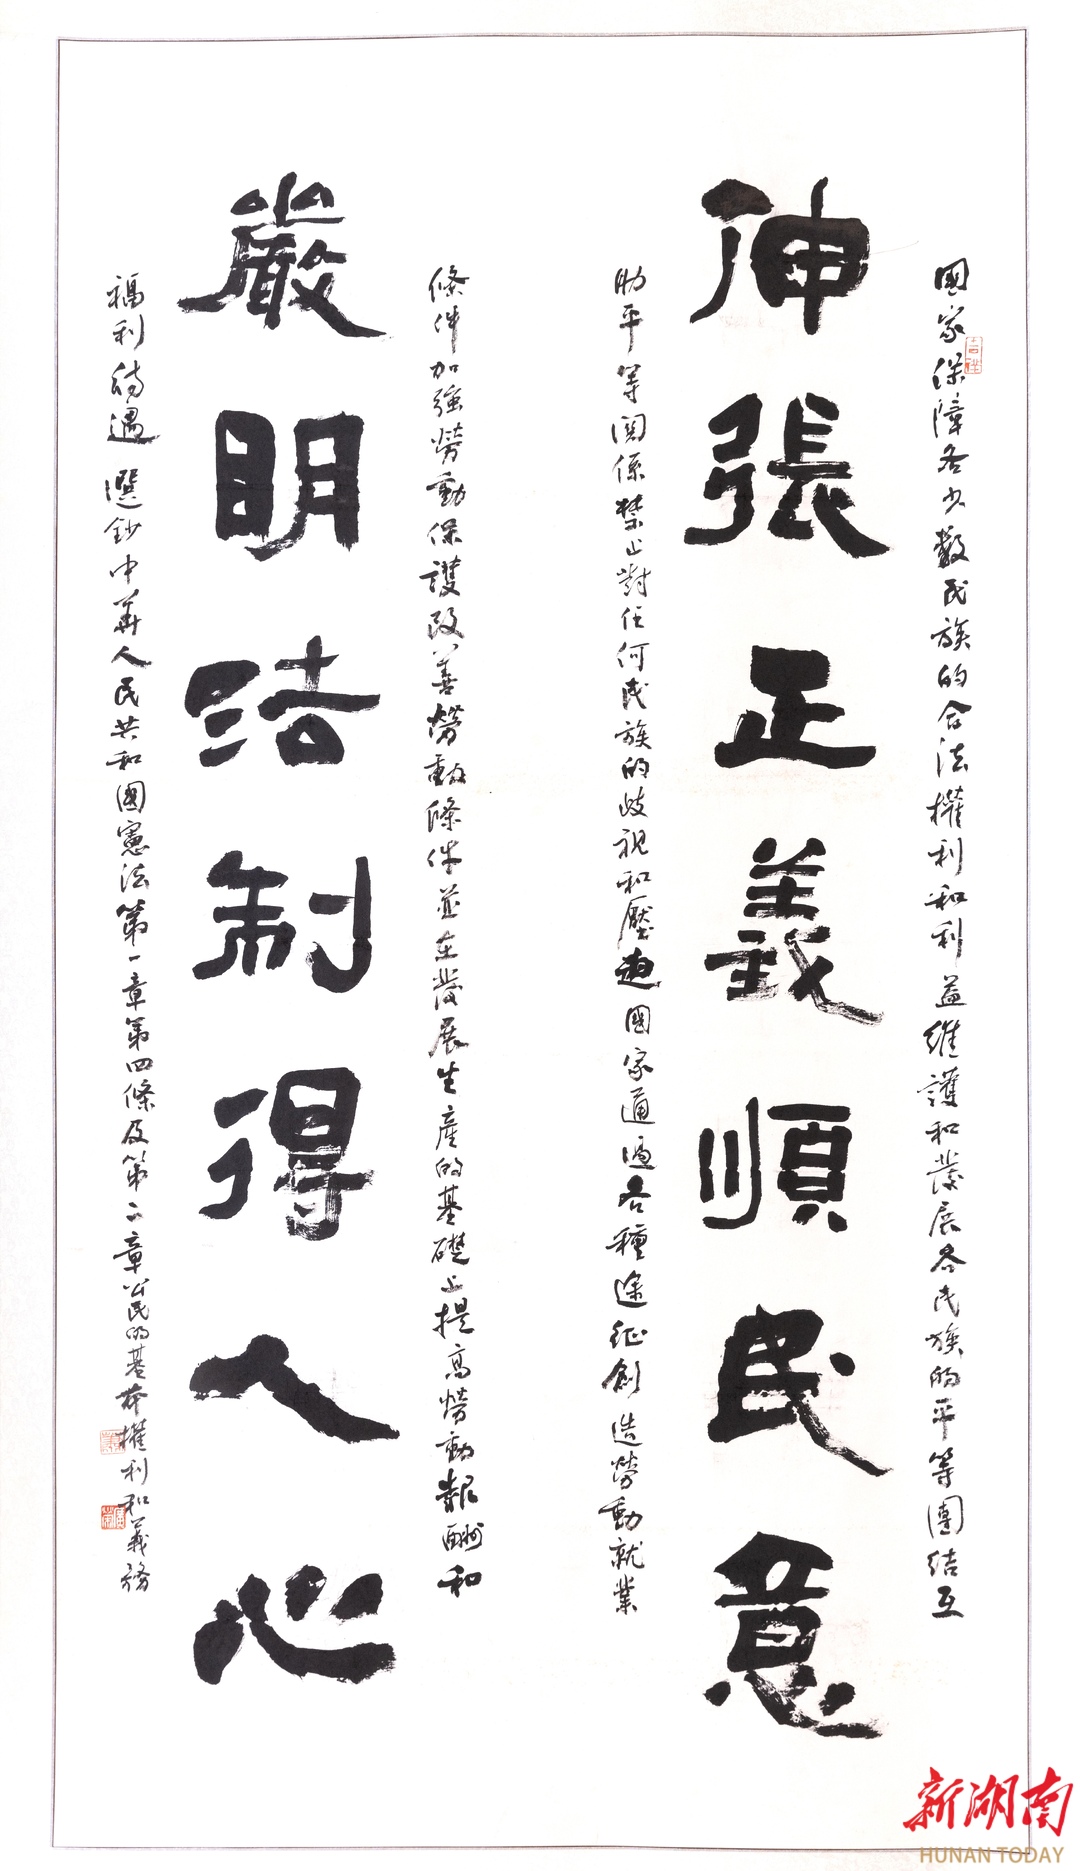 國家保障各少數民族的合法權利和利益維護和發展各民族的平等團結互
伸張正義順民意
助平等關係禁止對任何民族的歧視和壓迫國家通過各種途徑創造勞動就業
條件加強勞動保護改善勞動條件並在發展生產的基礎上提高勞動報酬和
嚴明法制得人心
福利待遇 選鈔中華人民共和國憲法第一章第四條及第二章公民的基本權利和義務
吉祥
新湖南
HUNAN TODAY